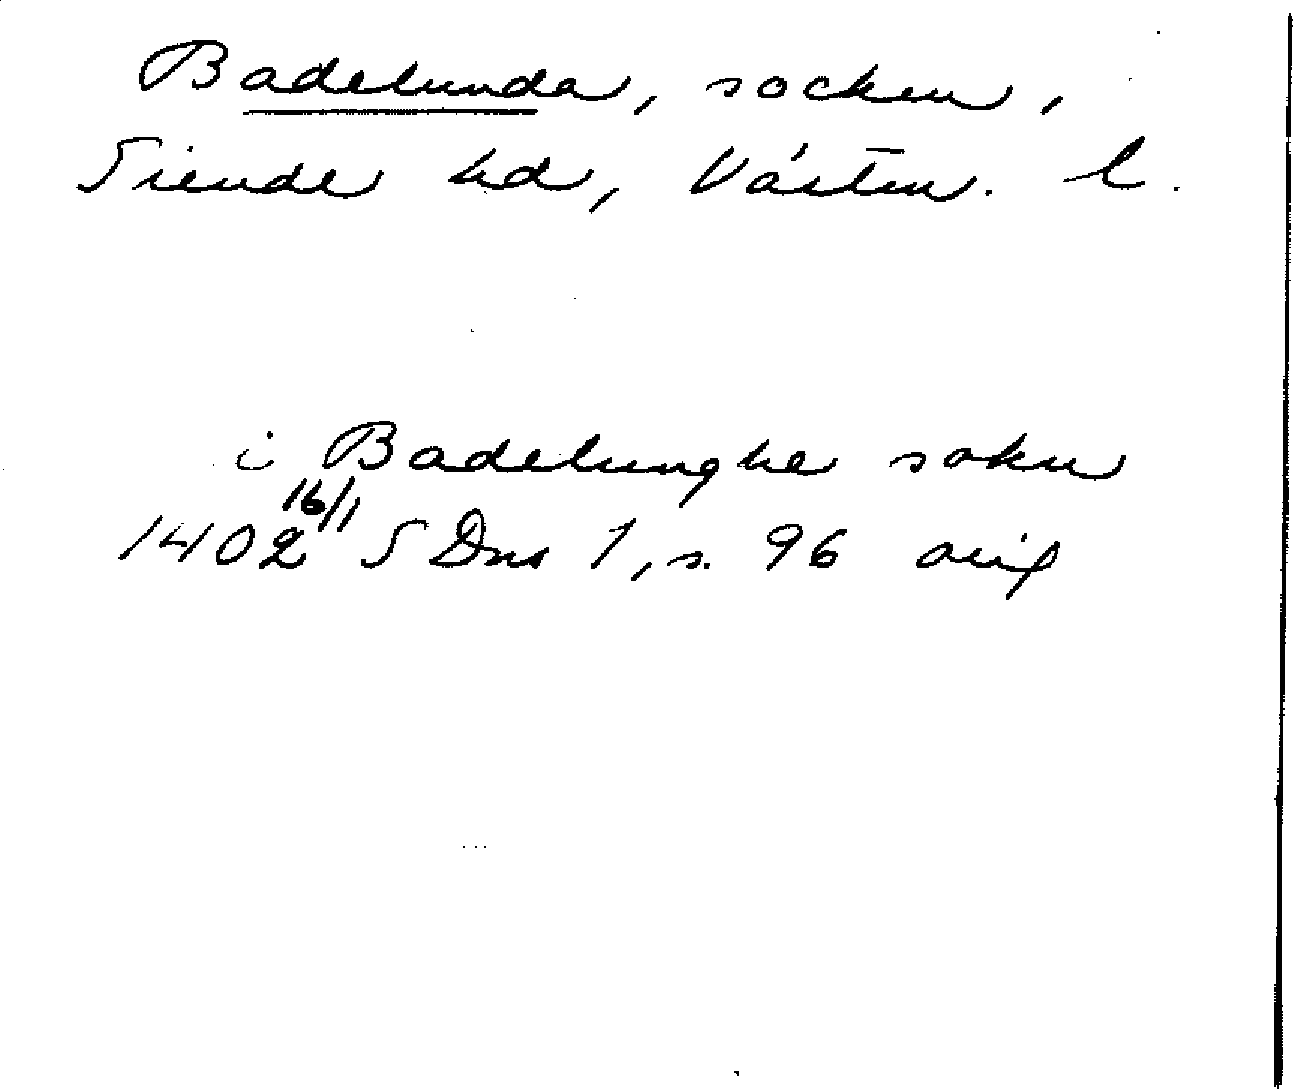 Badelunda, socken,
Siende hd, Västm. l.
i Badelunghe sokn
1402 16/1 SDns 1, s. 96 orig